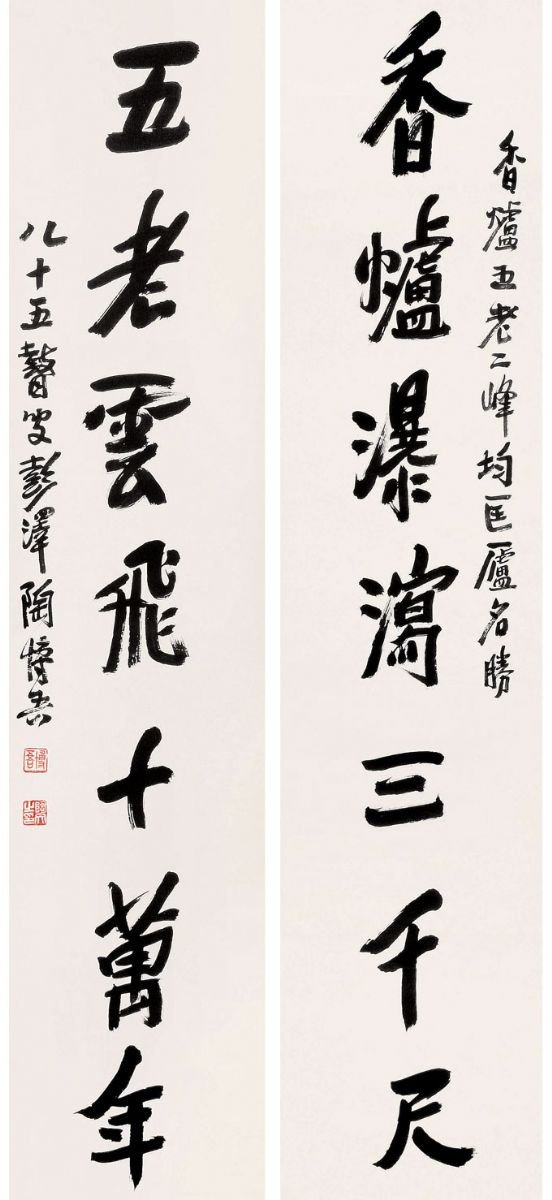 香爐五老二峰均匡廬名勝
香爐瀑瀉三千尺
五老雲飛十萬年
八十五瞽叟彭澤陶博吾
博吾